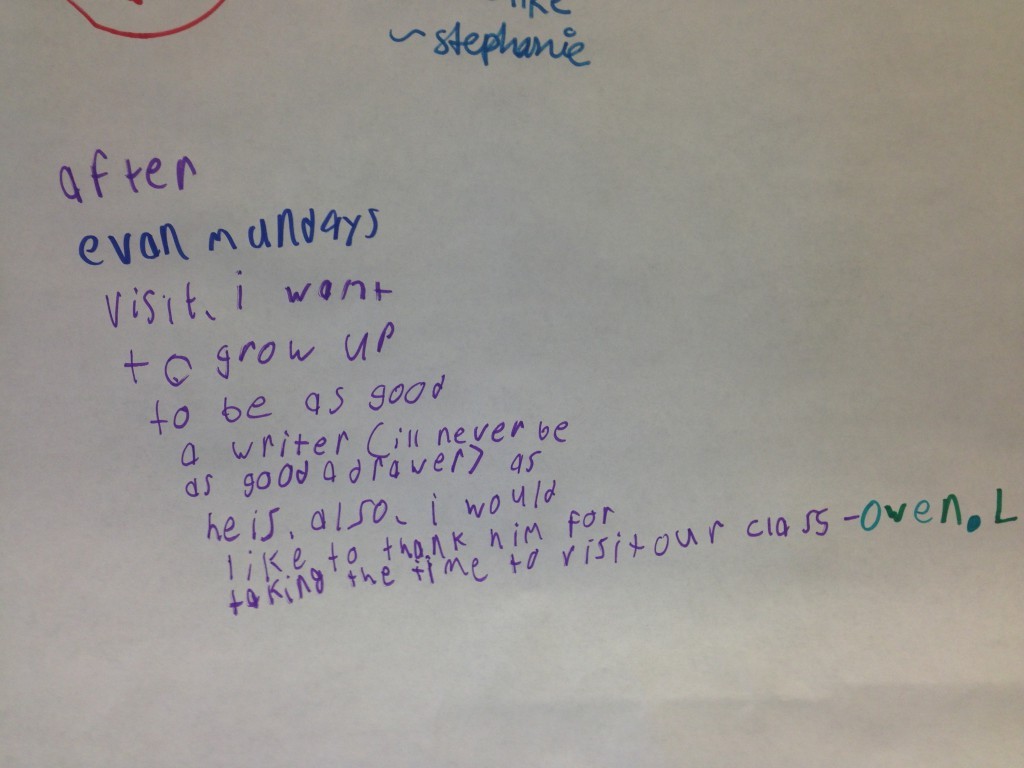 like
~stephanie
after
evan mundays
visit, i want
to grow up
to be as good
a writer (ill never be
as good a drawer) as
he is. also, i would
like to thank him for
taking the time to visit our class -owen.L